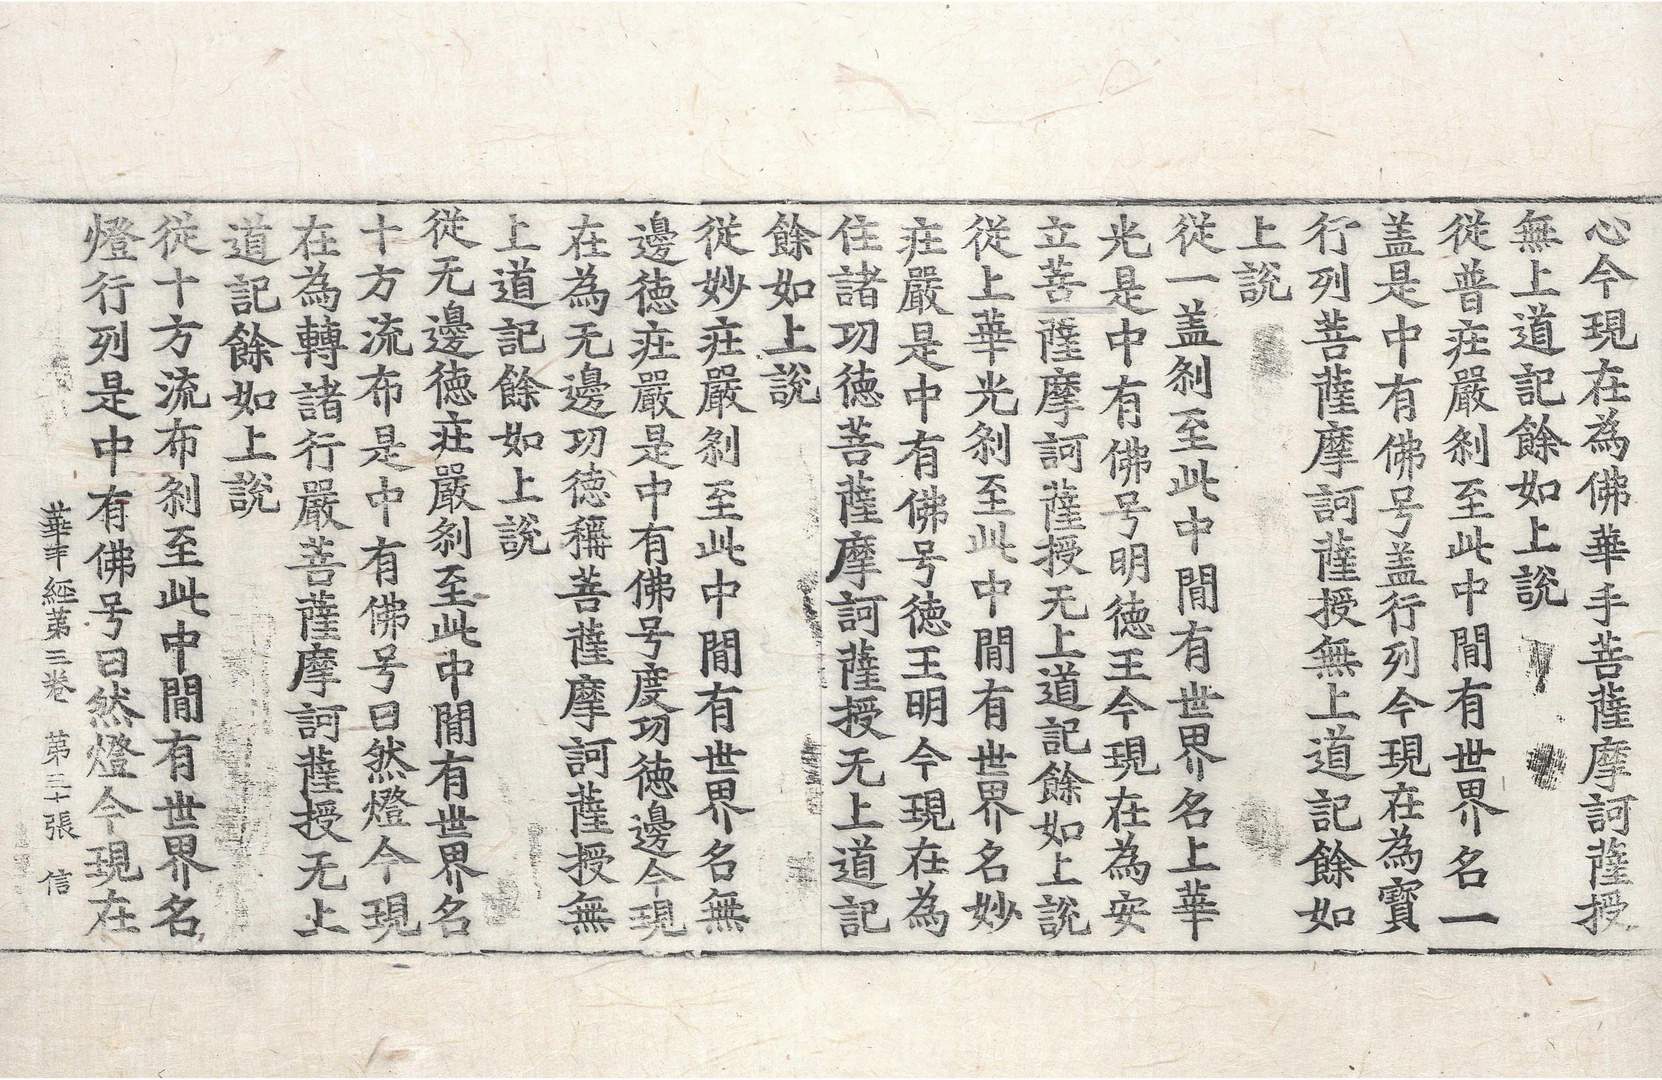 心今現在為佛華手菩薩摩訶薩授
無上道記餘如上說
從普庄嚴刹至此中閒有世界名一
盖是中有佛号盖行列今現在為寶
行列菩薩摩訶薩授無上道記餘如
上說
從一盖刹至此中閒有世界名上華
光是中有佛号明德王今現在為安
立菩薩摩訶薩授无上道記餘如上說
從上華光刹至此中閒有世界名妙
庄嚴是中有佛号德王明今現在為
住諸功德菩薩摩訶薩授无上道記
餘如上說
從妙庄嚴刹至此中閒有世界名無
邊德庄嚴是中有佛号度功德邊今現
在為无邊功德稱菩薩摩訶薩授無
上道記餘如上說
從无邊德庄嚴刹至此中閒有世界名
十方流布是中有佛号曰然燈今現
在為轉諸行嚴菩薩摩訶薩授无上
道記餘如上說
從十方流布刹至此中閒有世界名
燈行列是中有佛号曰然燈今現在
華手經第三卷 第三十張 信